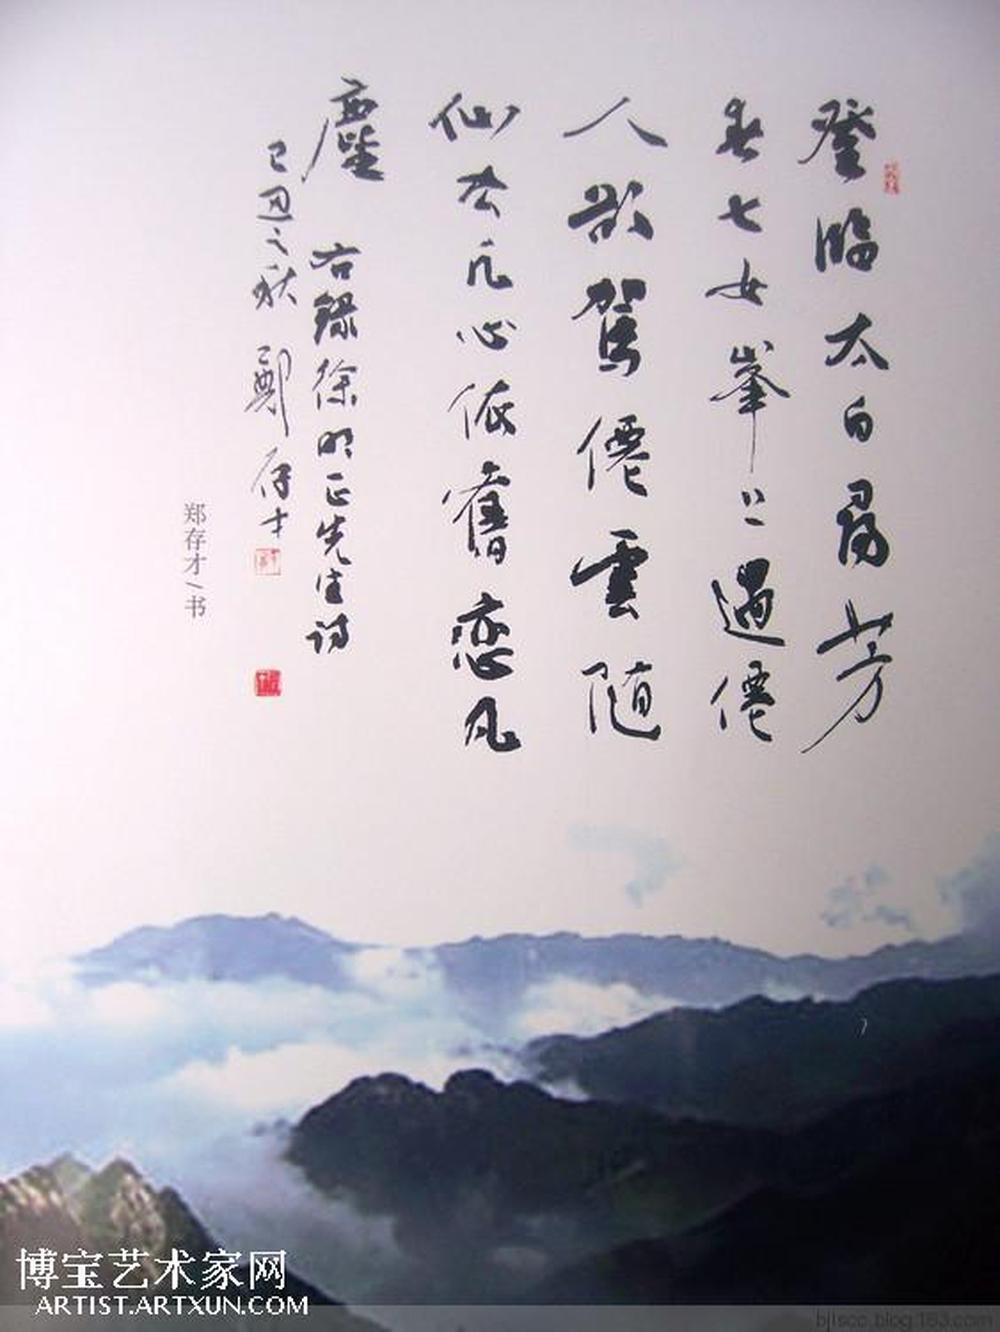 登臨太白尋芳
春七女峯上遇僊
人欲駕僊雲隨
仙去凡心依舊恋凡
塵 右録徐明正先生诗
己丑之秋 鄭存才
郑存才/书
博宝艺术家网
ARTIST.ARTXUN.COM
bjlscc.blog.163.com